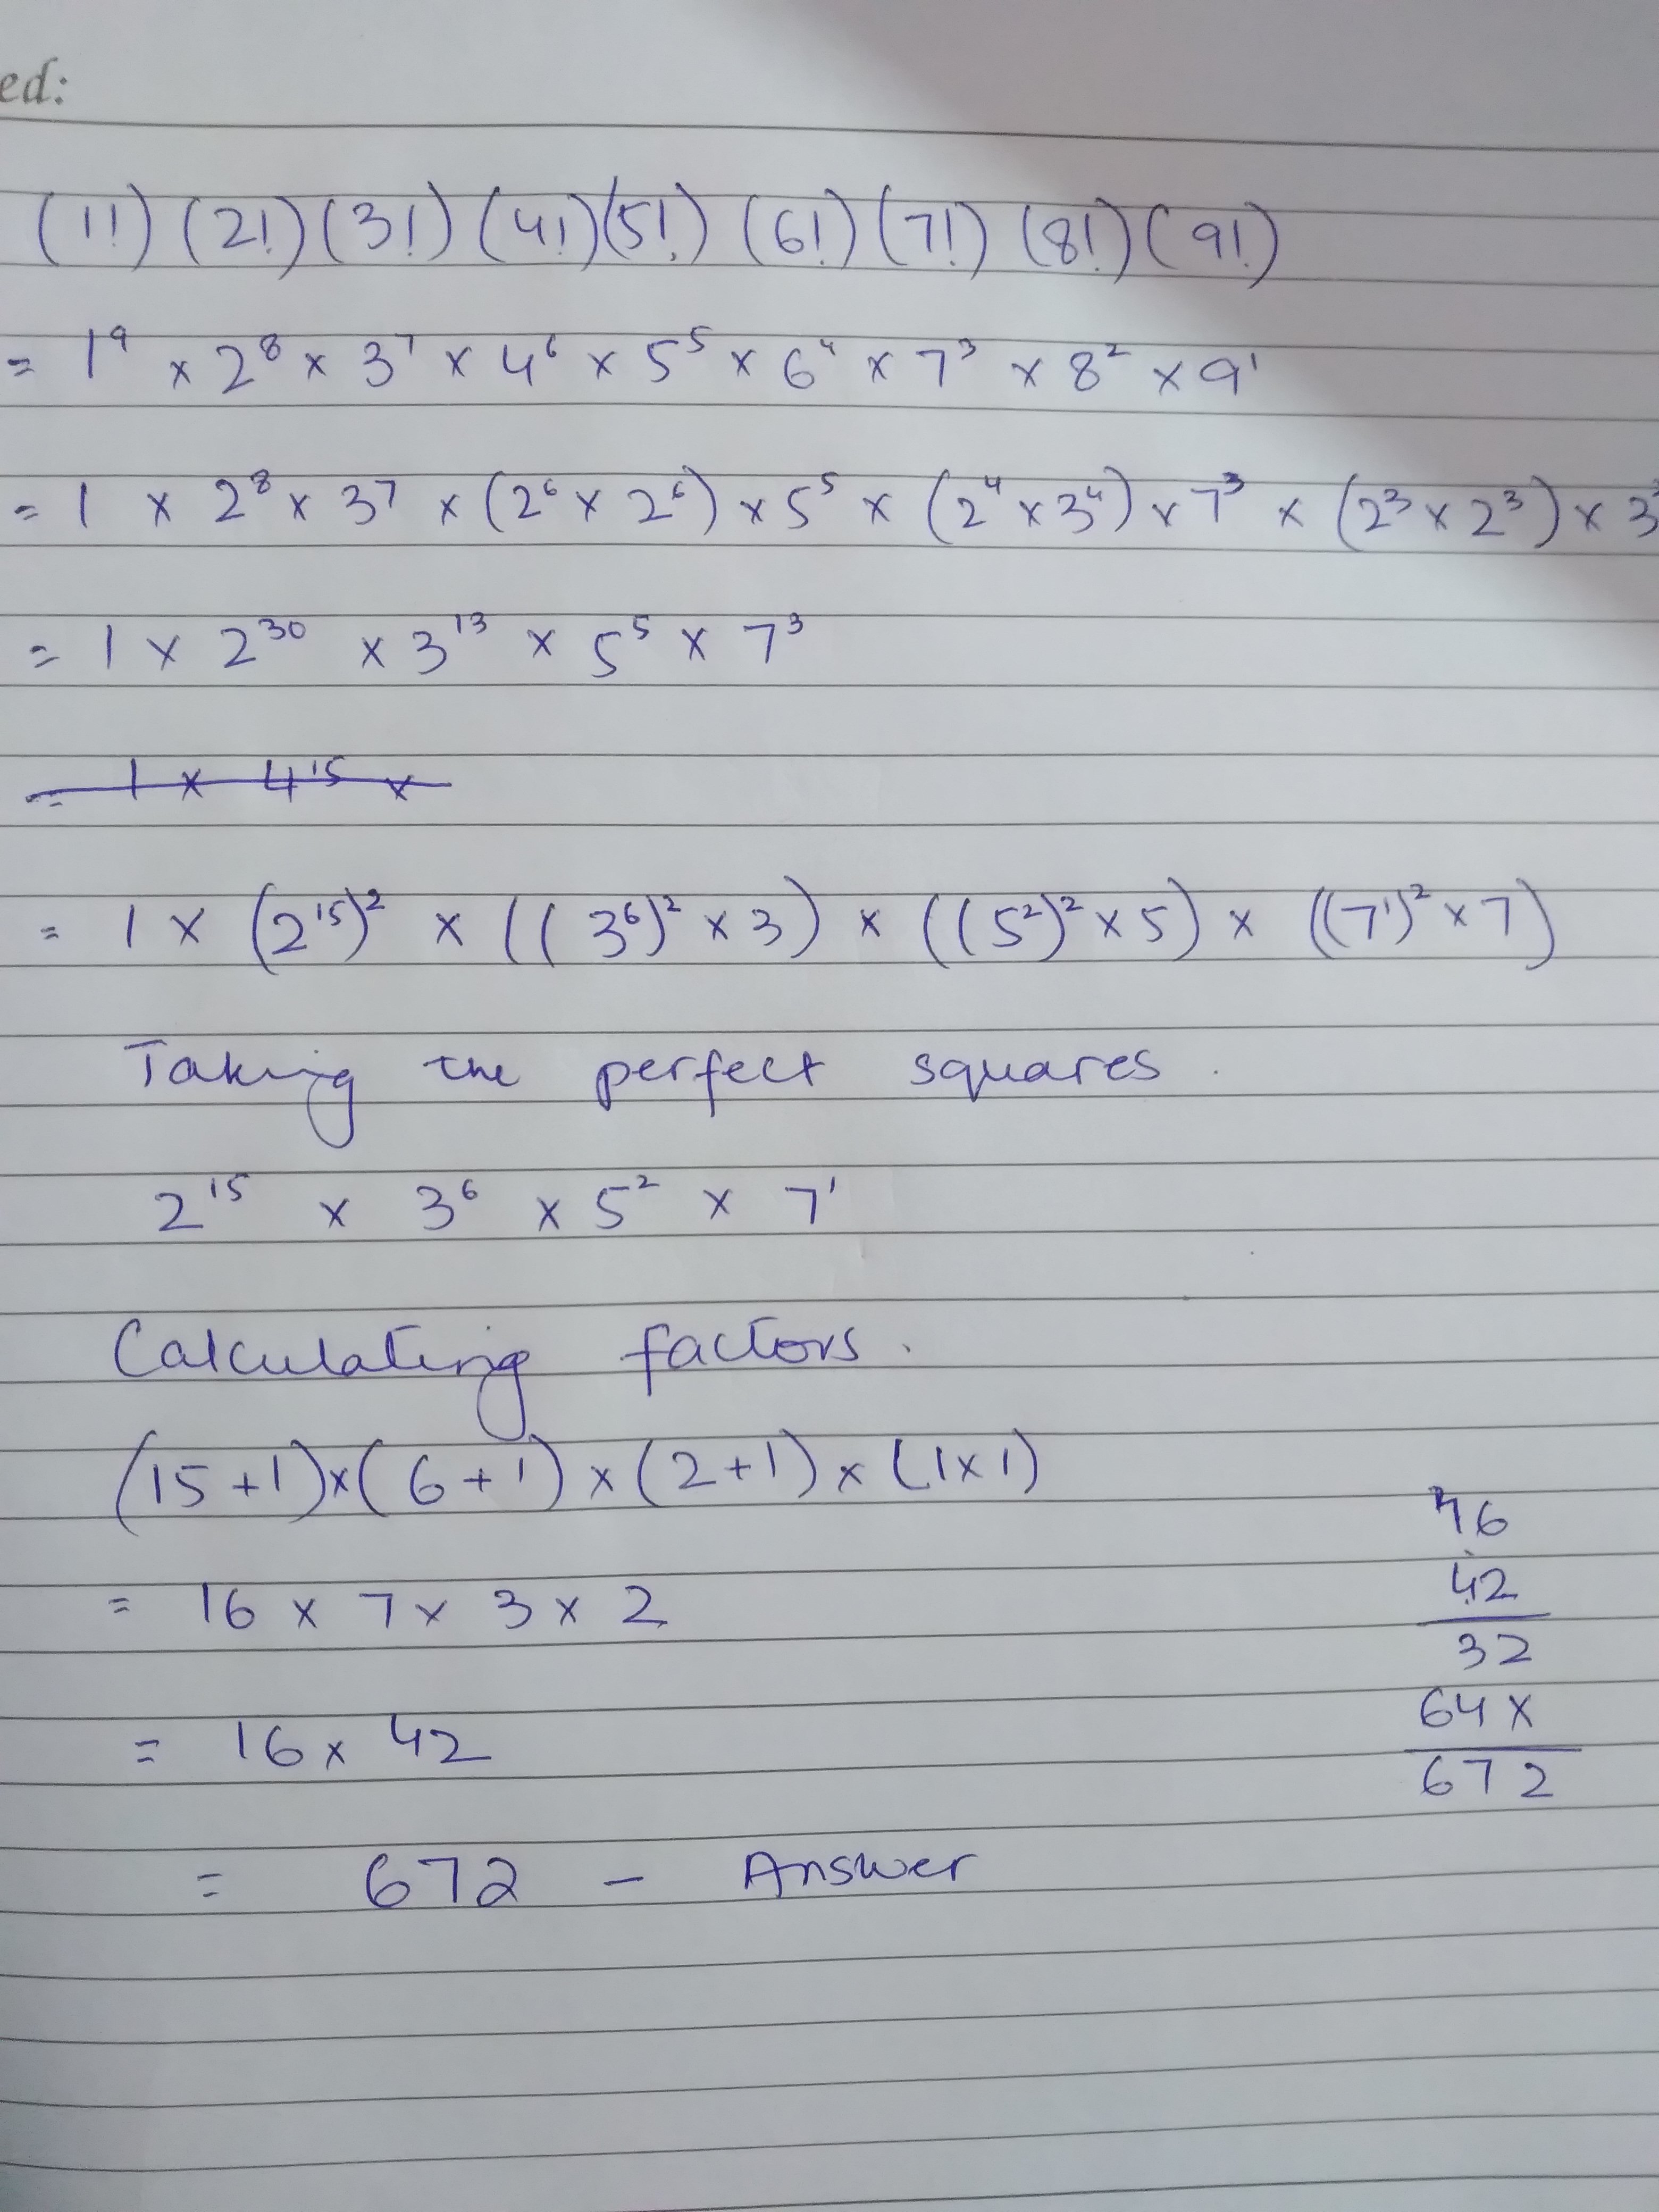 ed:
(1!) (2!) (3!) (4!) (5!) (6!) (7!) (8!) (9!)
= 1⁹ × 2⁸ × 3⁷ × 4⁶ × 5⁵ × 6⁴ × 7³ × 8² × 9¹
= 1 × 2⁸ × 3⁷ × (2⁶ × 2⁶) × 5⁵ × (2⁴ × 3⁴) × 7³ × (2³ × 2³) × 3
= 1 × 2³⁰ × 3¹³ × 5⁵ × 7³
= 1 × 4¹⁵ ×
= 1 × (2¹⁵)² × ((3⁶)² × 3) × ((5²)² × 5) × ((7¹)² × 7)
Taking the perfect squares.
2¹⁵ × 3⁶ × 5² × 7¹
Calculating factors.
(15+1)×(6+1)×(2+1)×(1×1)
= 16 × 7 × 3 × 2
= 16 × 42
= 672 – Answer
16
42
32
64 ×
672